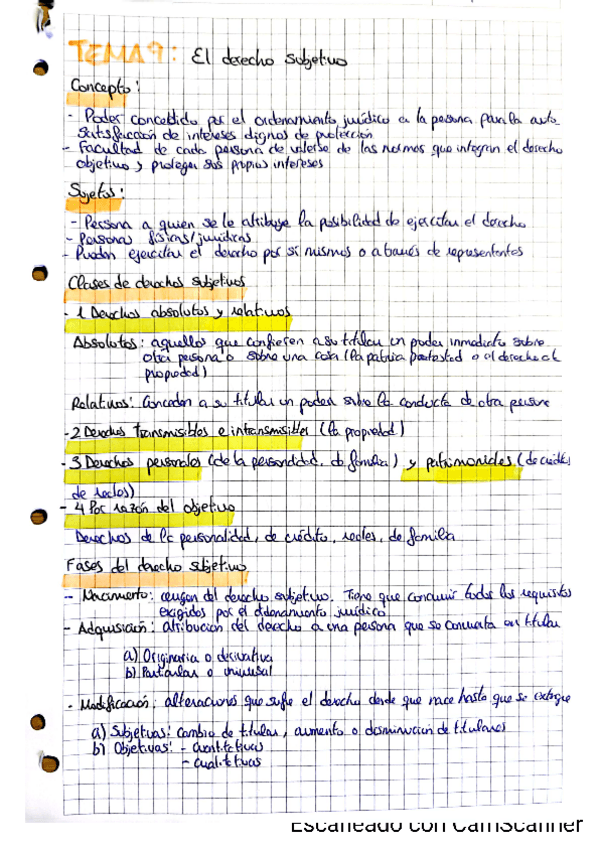 TEMA 9: El derecho subjetivo
Concepto:
- Poder concedido por el ordenamiento jurídico a la persona para la auto
satisfacción de intereses dignos de protección
- Facultad de cada persona de valerse de las normas que integran el derecho
objetivo y proteger sus propios intereses
Sujetos:
- Persona a quien se le atribuye la posibilidad de ejercitar el derecho
- Personas físicas/jurídicas
- Pueden ejercitar el derecho por sí mismos o a través de representantes
Clases de derechos subjetivos
- 1 Derechos absolutos y relativos
Absolutos: aquellos que confieren a su titular un poder inmediato sobre
otra persona o sobre una cosa (la patria potestad o el derecho de
propiedad)
Relativos: Conceden a su titular un poder sobre la conducta de otra persona
- 2 Derechos transmisibles e intransmisibles (la propiedad)
- 3 Derechos personales (de la personalidad, de familia) y patrimoniales (de crédito,
de reales)
- 4 Por razón del objetivo
Derechos de la personalidad, de crédito, reales, de familia
Fases del derecho subjetivo
- Nacimiento: origen del derecho subjetivo. Tiene que concurrir todos los requisitos
exigidos por el ordenamiento jurídico
- Adquisición: atribución del derecho a una persona que se convierta en titular
a) Originaria o derivativa
b) Particular o universal
- Modificación: alteraciones que sufre el derecho desde que nace hasta que se extingue
a) Subjetivas: cambio de titular, aumento o disminución de titulares
b) Objetivas: - cuantitativas
- cualitativas
Escaneado con CamScanner